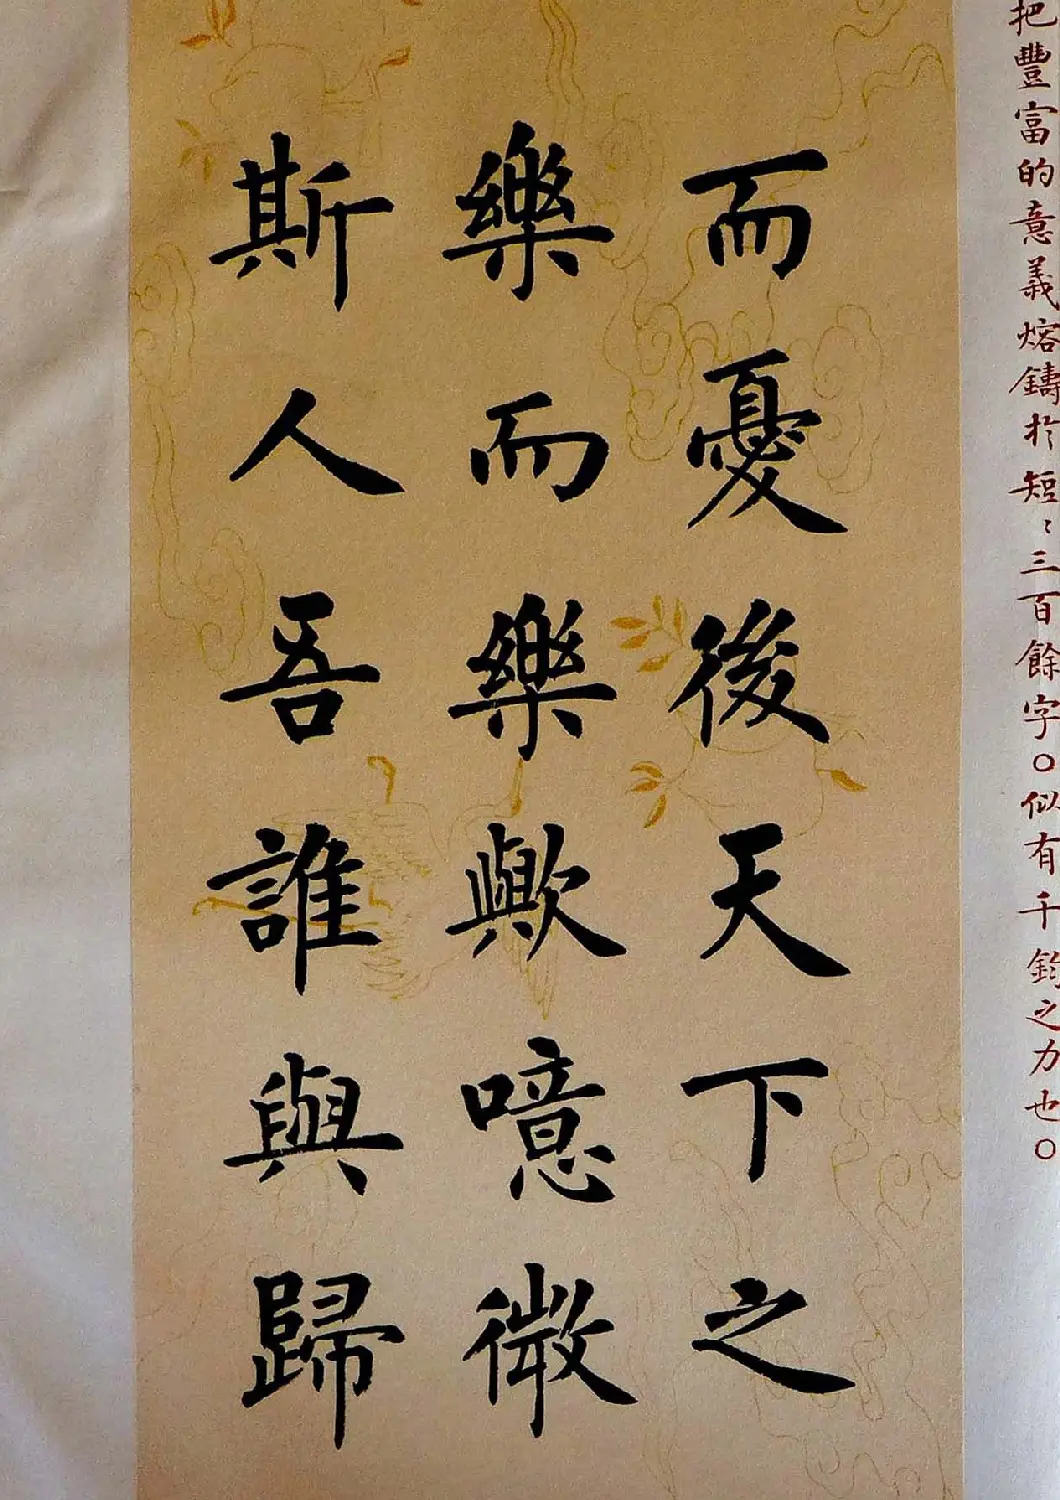 把豐富的意義熔鑄於短〻三百餘字。似有千鈞之力也。
而憂後天下之
樂而樂歟噫微
斯人吾誰與歸